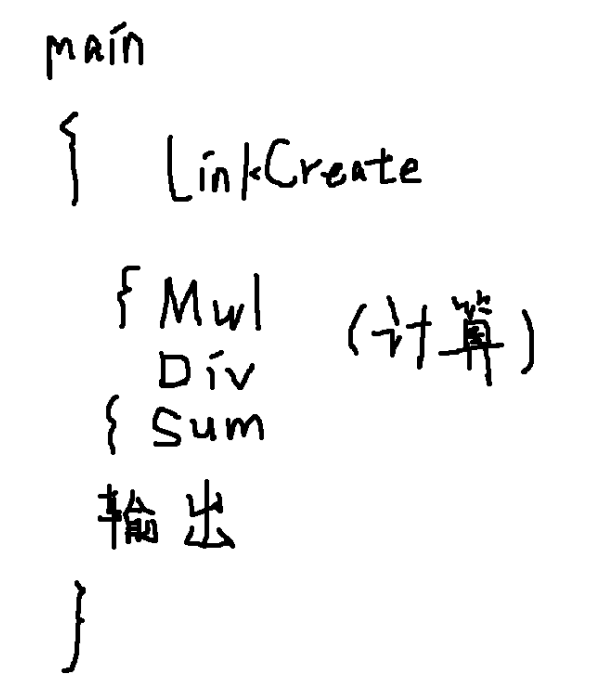 main
{ LinkCreate
{ Mul (计算)
Div
{ Sum
輸出
}